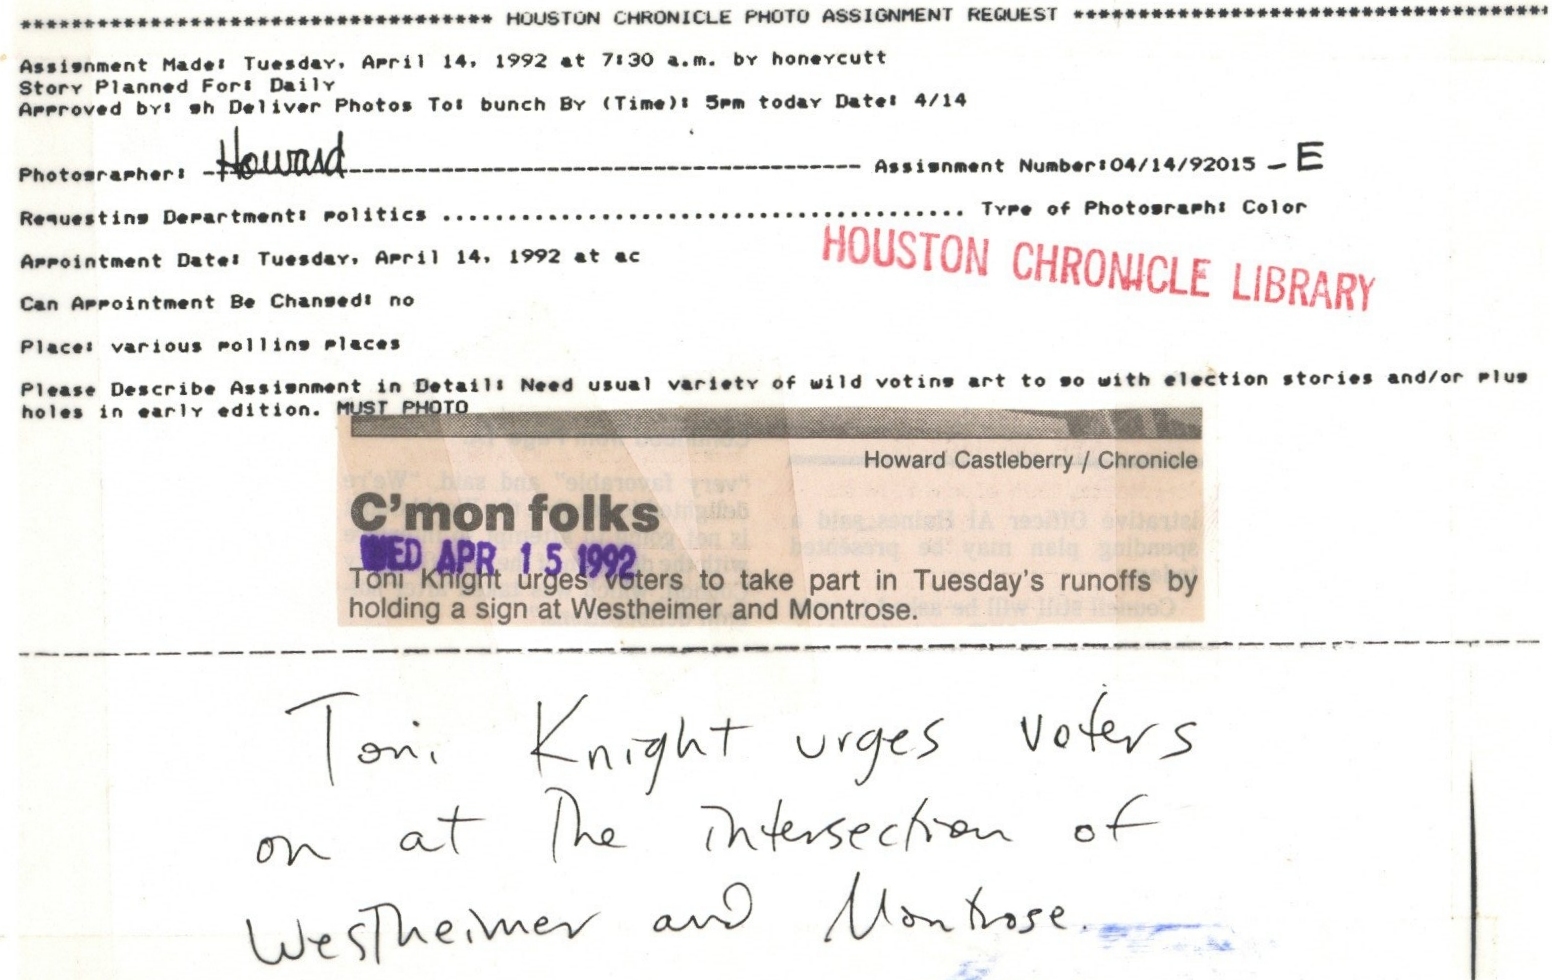 ********************************** HOUSTON CHRONICLE PHOTO ASSIGNMENT REQUEST **********************************
Assignment Made: Tuesday, April 14, 1992 at 7:30 a.m. by honeycutt
Story Planned For: Daily
Approved by: sh Deliver Photos To: bunch By (Time): 5pm today Date: 4/14
Photographer: -Howard---------------------------------------- Assignment Number:04/14/92015 - E
Requesting Department: politics ...................................... Type of Photograph: Color
Appointment Date: Tuesday, April 14, 1992 at ac
HOUSTON CHRONICLE LIBRARY
Can Appointment Be Changed: no
Place: various polling places
Please Describe Assignment in Detail: Need usual variety of wild voting art to go with election stories and/or plug
holes in early edition. MUST PHOTO
Howard Castleberry / Chronicle
C'mon folks
WED APR 15 1992
Toni Knight urges voters to take part in Tuesday's runoffs by
holding a sign at Westheimer and Montrose.
Toni Knight urges voters
on at the intersection of
Westheimer and Montrose.